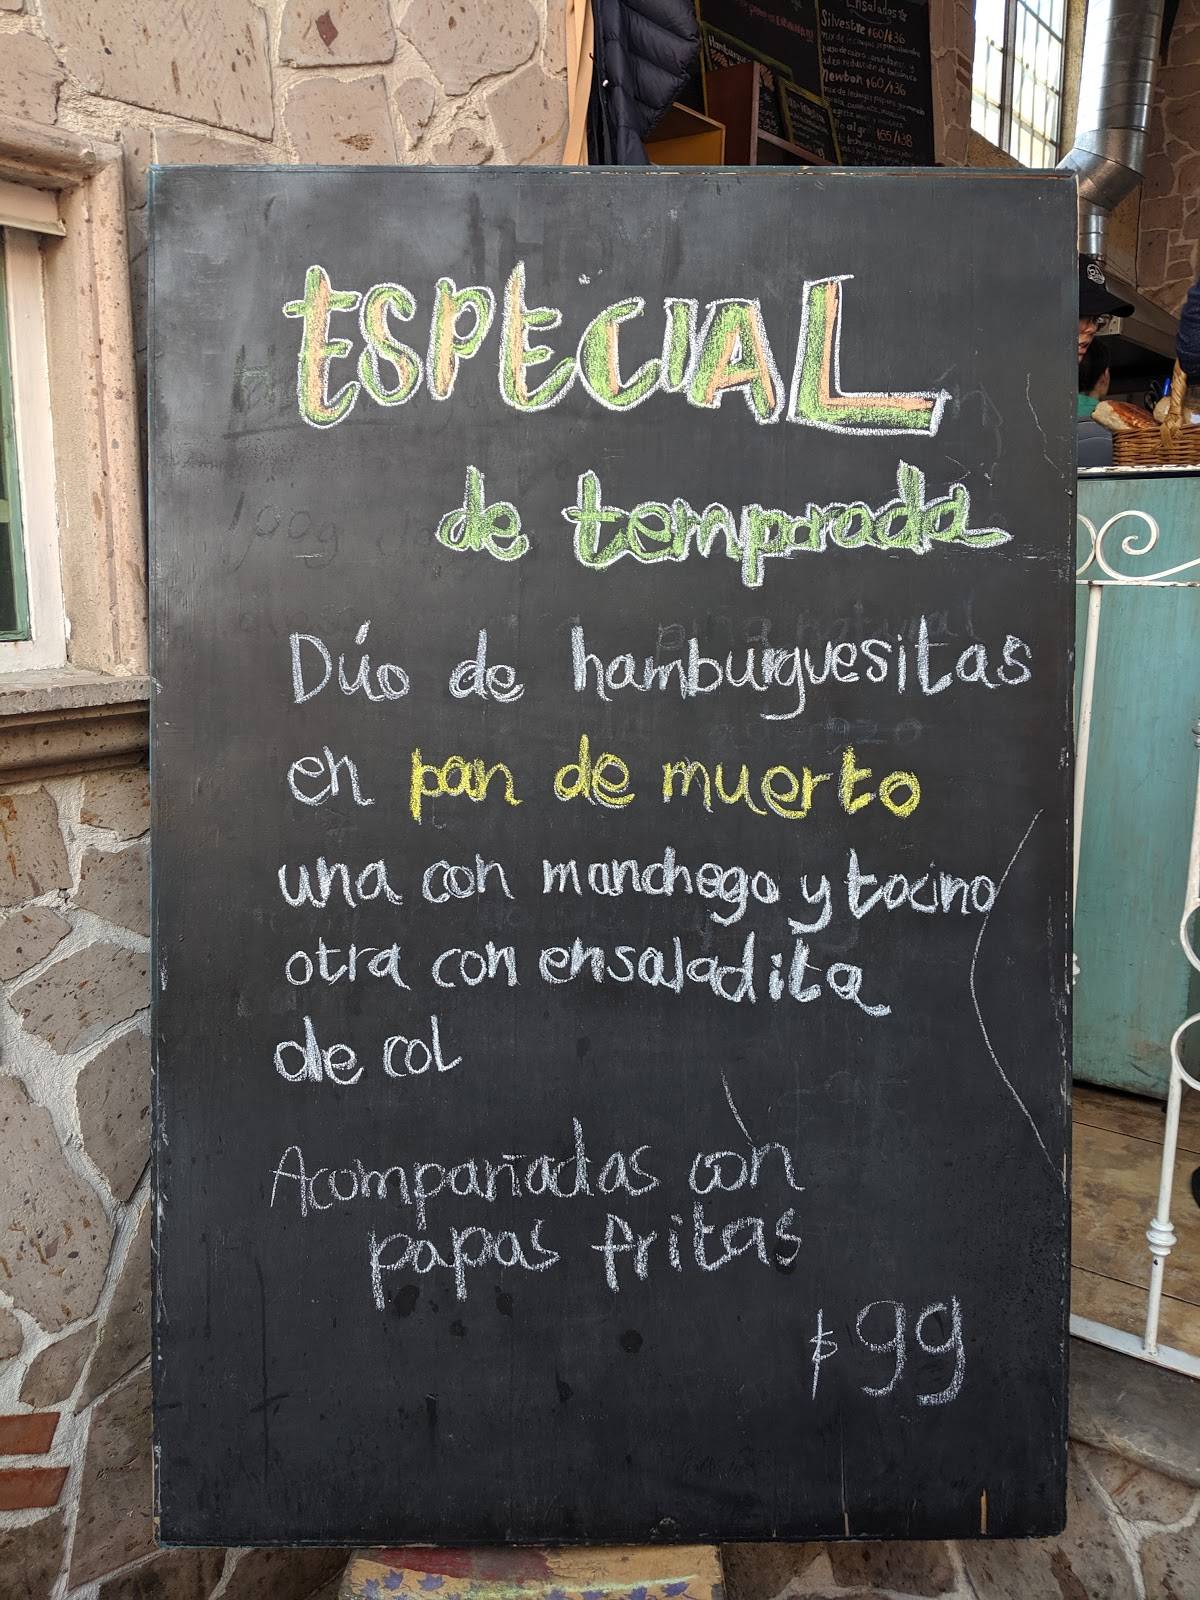 Ensaladas
Silvestre $60/$36
Newton $60/$36
$65/$38
Hamburgue
ESPECIAL
de temporada
Dúo de hamburguesitas
en pan de muerto
una con manchego y tocino
otra con ensaladita
de col
Acompañadas con
papas fritas
$99